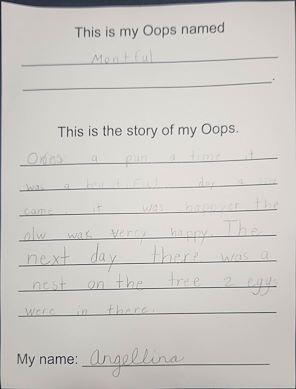 This is my Oops named
Montful
.
This is the story of my Oops.
a pun a time it
was a beautiful day a
came it was happyer the
olw was very happy. The
next day there was a
nest on the tree 2 eggs
were in there.
My name: Angellina